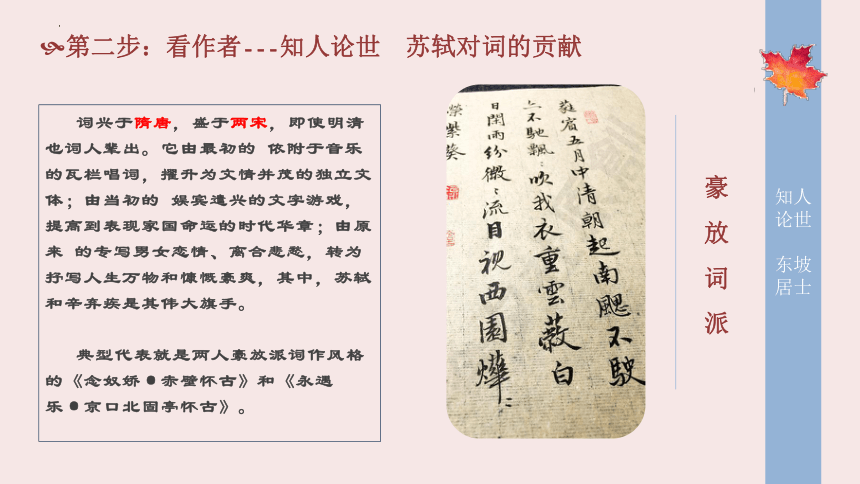 第二步：看作者---知人论世 苏轼对词的贡献
词兴于隋唐，盛于两宋，即使明清
也词人辈出。它由最初的 依附于音乐
的瓦栏唱词，擢升为文情并茂的独立文
体；由当初的 娱宾遣兴的文字游戏，
提高到表现家国命运的时代华章；由原
来 的专写男女恋情、离合悲愁，转为
抒写人生万物和慷慨豪爽，其中，苏轼
和辛弃疾是其伟大旗手。
典型代表就是两人豪放派词作风格
的《念奴娇•赤壁怀古》和《永遇
乐•京口北固亭怀古》。
蕤賓五月中清朝起南颸不駛
亦不馳飄〻吹我衣重雲蔽白
日閑雨紛微〻流目視西園燁〻
榮紫葵
豪放词派
知人
论世
东坡
居士